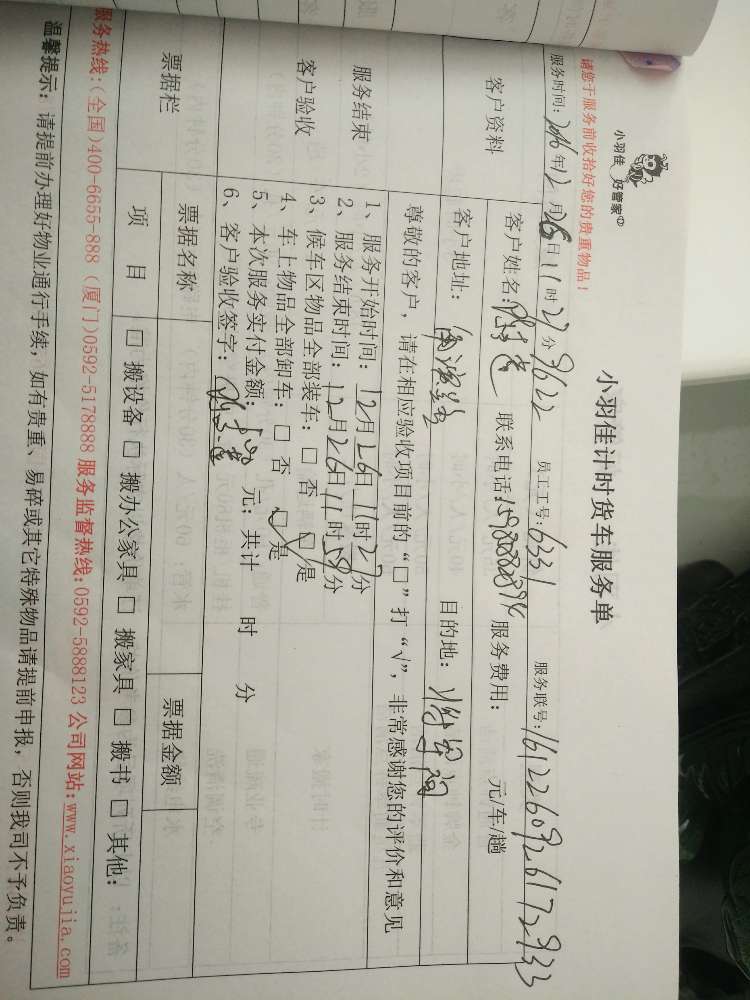 小羽佳 好管家
小羽佳计时货车服务单
请您于服务前收拾好您的贵重物品！
服务时间：2016年12月26日11时27分 9622 员工工号：6331 服务联号：1612260926172933
客户资料
客户姓名： 联系电话： 服务费用： 元/车/趟
客户地址： 目的地：
服务结束
客户验收
尊敬的客户，请在相应验收项目前的“□”打“√”，非常感谢您的评价和意见
1、服务开始时间：12月26日11时27分
2、服务结束时间：12月26日11时58分
3、候车区物品全部装车：□ 否 ☑ 是
4、车上物品全部卸车：□ 否 ☑ 是
5、本次服务实付金额： 元；共计 时 分
6、客户验收签字：
票据栏
票据名称 票据金额
项 目 □ 搬设备 □ 搬办公家具 □ 搬家具 □ 搬书 □ 其他：
服务热线：(全国)400-6655-888 (厦门)0592-5178888 服务监督热线：0592-5888123 公司网站：www.xiaoyujia.com
温馨提示：请提前办理好物业通行手续，如有贵重、易碎或其它特殊物品请提前申报，否则我司不予负责。